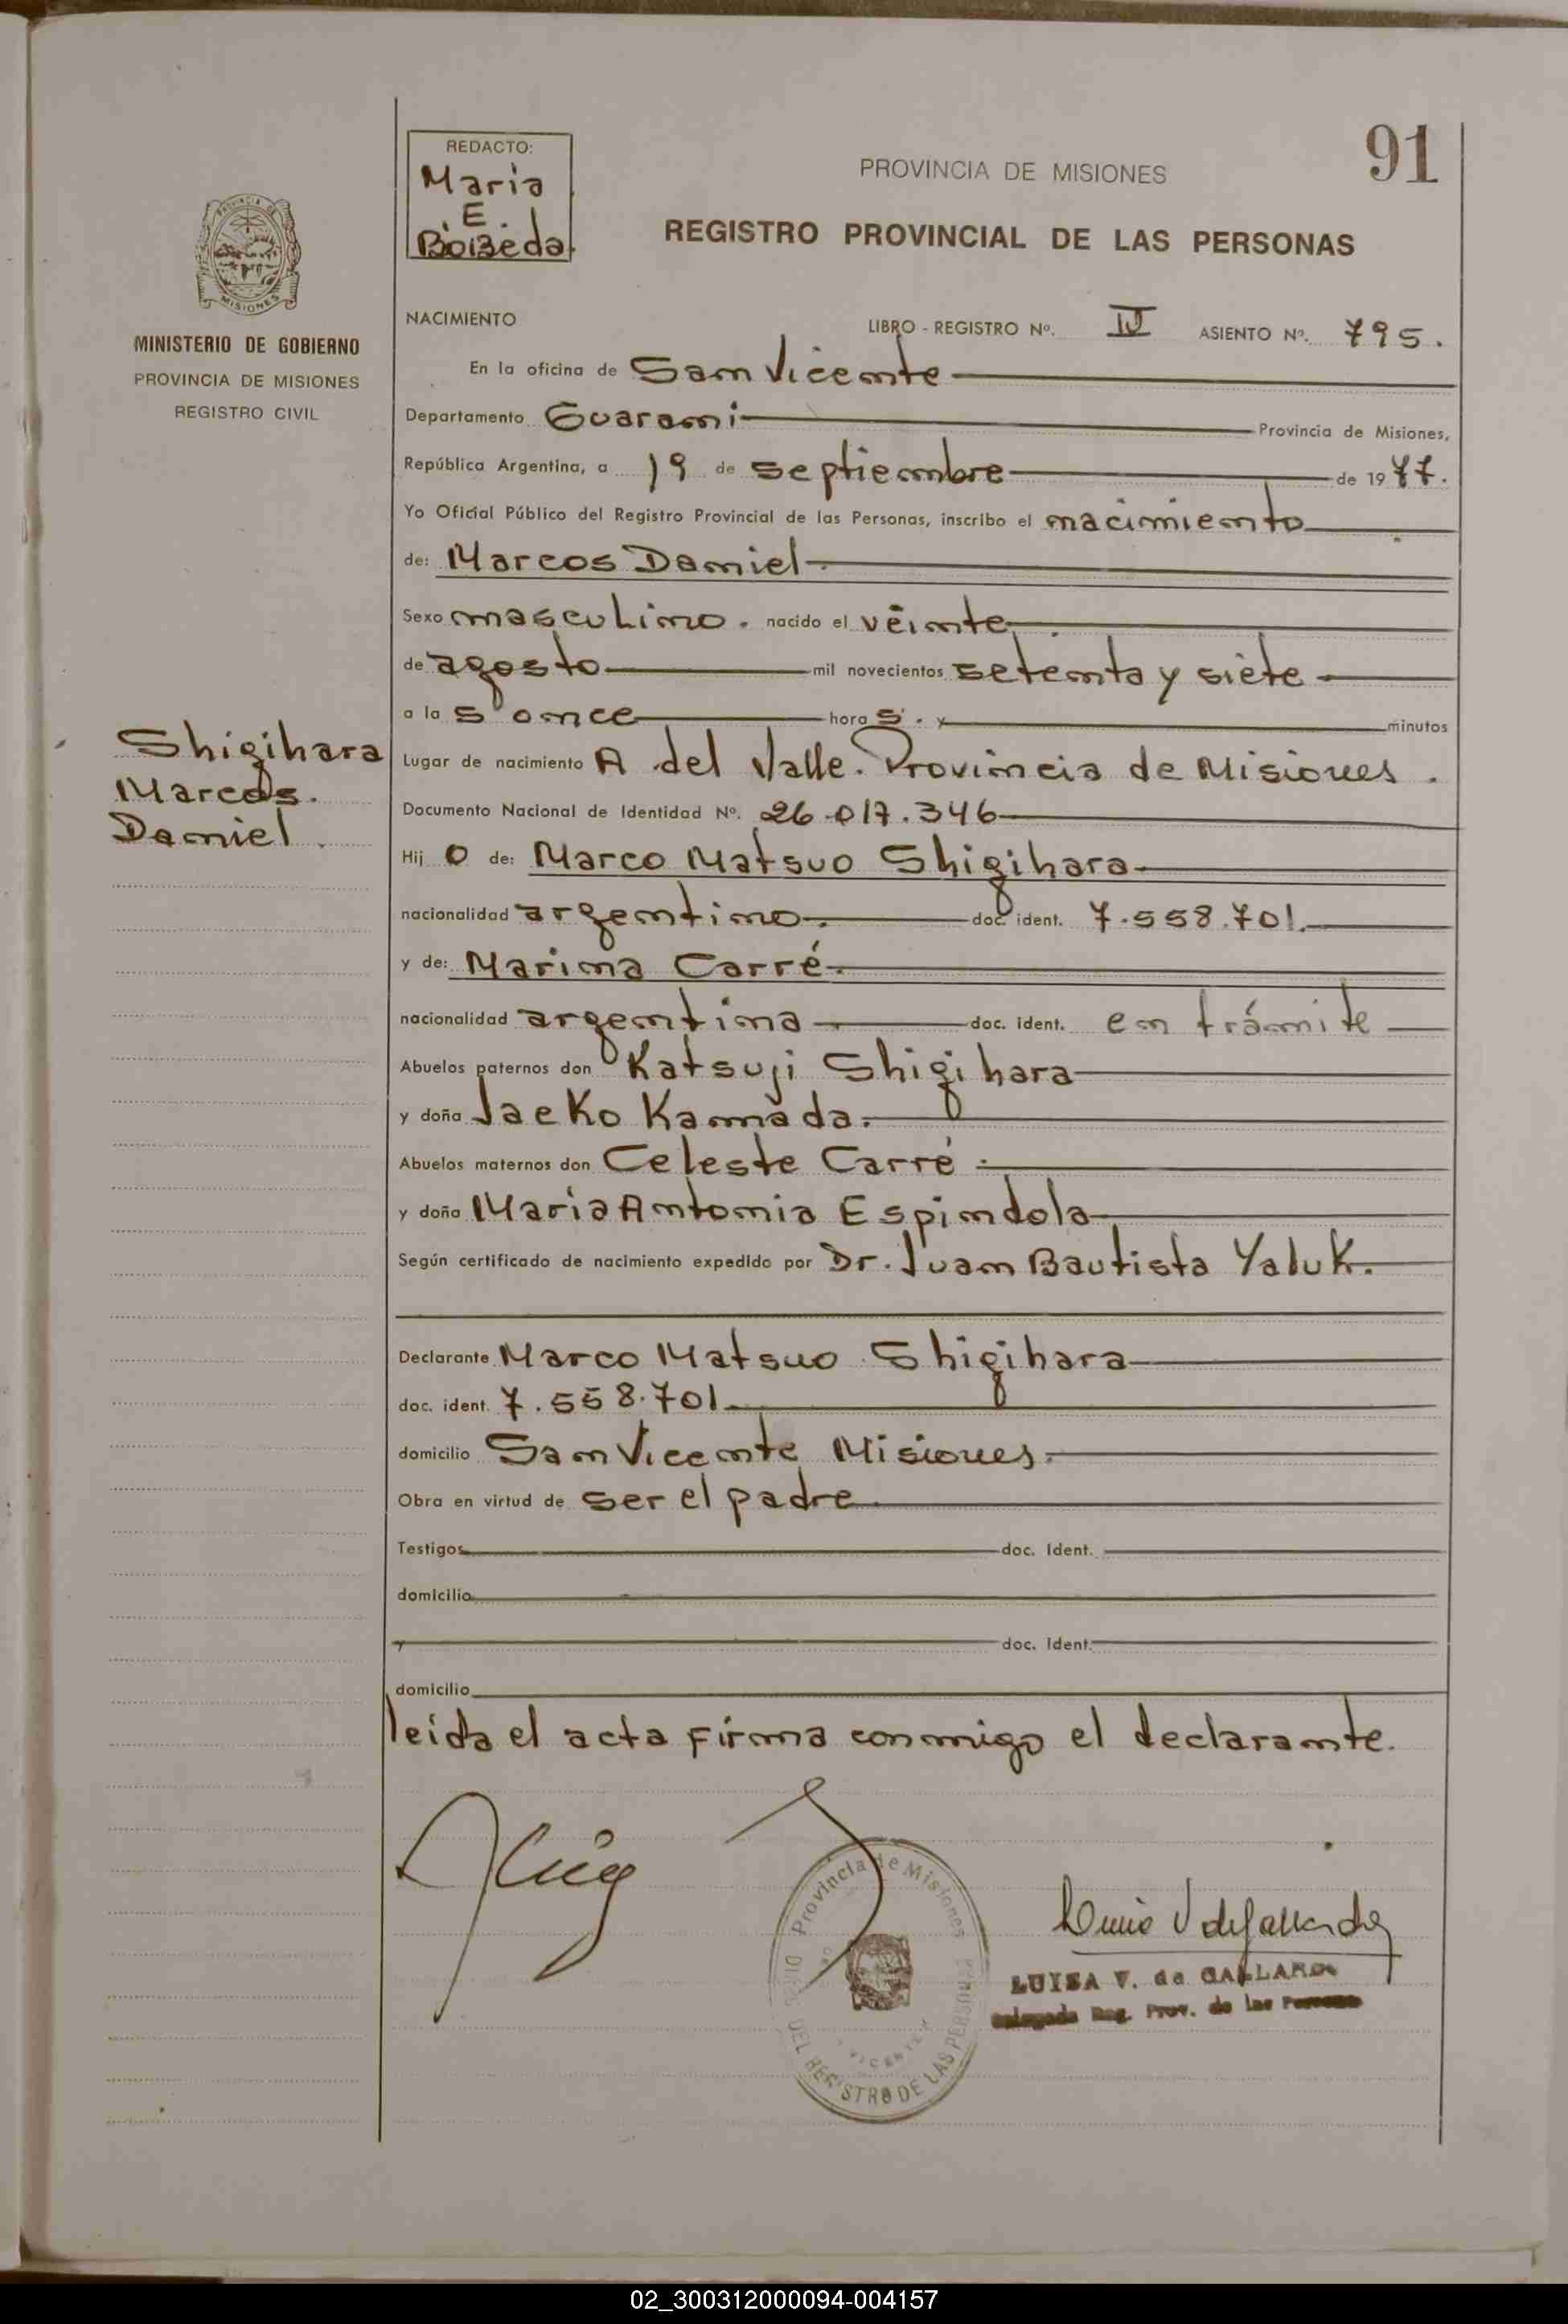 91
REDACTO:
Maria
E.
BoiBeda.
PROVINCIA DE MISIONES
REGISTRO PROVINCIAL DE LAS PERSONAS
PROVINCIA DE
MISIONES
MINISTERIO DE GOBIERNO
PROVINCIA DE MISIONES
REGISTRO CIVIL
Shigihara
Marcos.
Daniel
NACIMIENTO LIBRO - REGISTRO Nº. IV ASIENTO Nº. 795.
En la oficina de San Vicente
Departamento Guarani Provincia de Misiones,
República Argentina, a 19 de septiembre de 1977.
Yo Oficial Público del Registro Provincial de las Personas, inscribo el nacimiento
de: Marcos Daniel
Sexo masculino. nacido el veinte
de agosto mil novecientos setenta y siete
a las once horas. y minutos
Lugar de nacimiento A del Valle. Provincia de Misiones.
Documento Nacional de Identidad Nº. 26.017.346
Hijo de: Marco Matsuo Shigihara
nacionalidad argentino. doc. ident. 7.558.701.
y de: Marina Carré.
nacionalidad argentina doc. ident. en trámite
Abuelos paternos don Katsuji Shigihara
y doña Jaeko Kannada.
Abuelos maternos don Celeste Carré.
y doña María Antonia Espindola
Según certificado de nacimiento expedido por Dr. Juan Bautista Yaluk.
Declarante Marco Matsuo Shigihara
doc. ident. 7.558.701
domicilio San Vicente Misiones.
Obra en virtud de ser el padre
Testigos doc. Ident.
domicilio
y doc. Ident.
domicilio
leida el acta firma conmigo el declarante.
Provincia de Misiones
DEL REGISTRO DE LAS PERSONAS
VICENTE
LUISA V. de GALLARDO
Delegada Reg. Prov. de las Personas
02_300312000094-004157